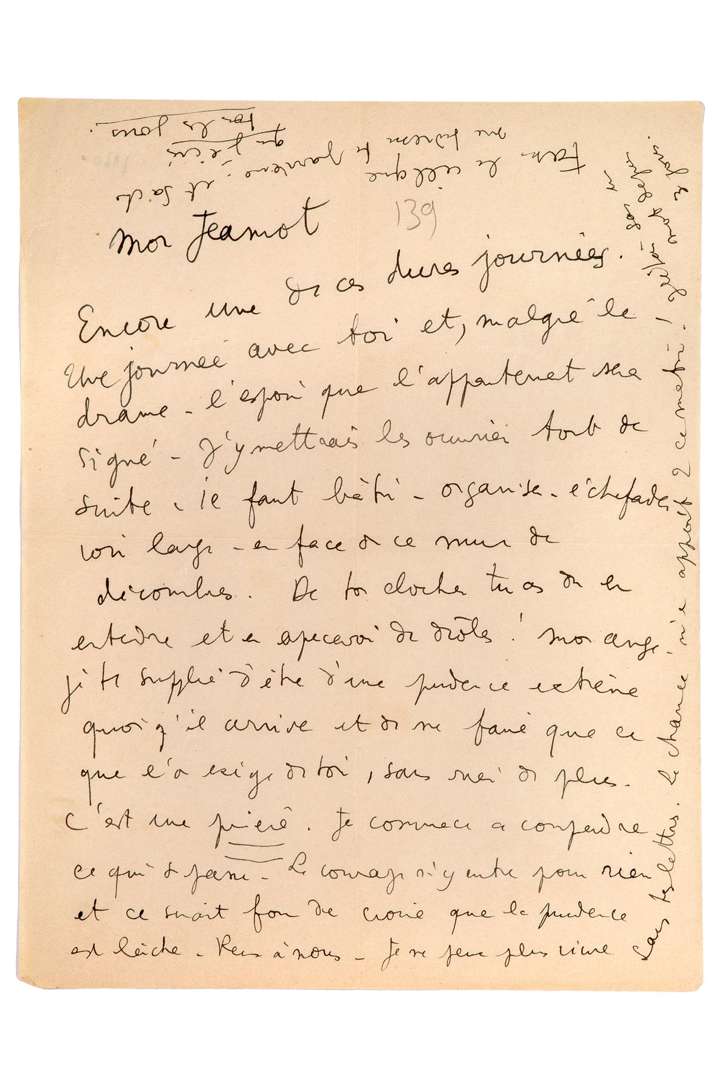 Mon Jeannot
139
Encore une de ces dures journées.
Une journée avec toi et, malgré le
drame - l'espoir que l'appartement sera
signé - J'y mettrais les ouvriers tout de
suite. il faut bâtir - organiser - échafauder
voir large - en face de ce mur de
décombres. De ton clocher tu as dû en
entendre et en apercevoir de drôles! Mon ange
je te supplie d'être d'une prudence extrême
quoi qu'il arrive et de ne faire que ce
que l'on exige de toi, sans rien de plus.
C'est une prière. Je commence a comprendre
ce qui se passe - Le courage n'y entre pour rien
et ce serait fou de croire que la prudence
est lâche - Pense à nous - Je ne peux plus vivre
sans tes lettres. La chance m'en apporte 2 ce matin! sans un
mot depuis
3 jours.
Fasse le ciel que
te parvienne. et sache
que j'écris
tous les jours.